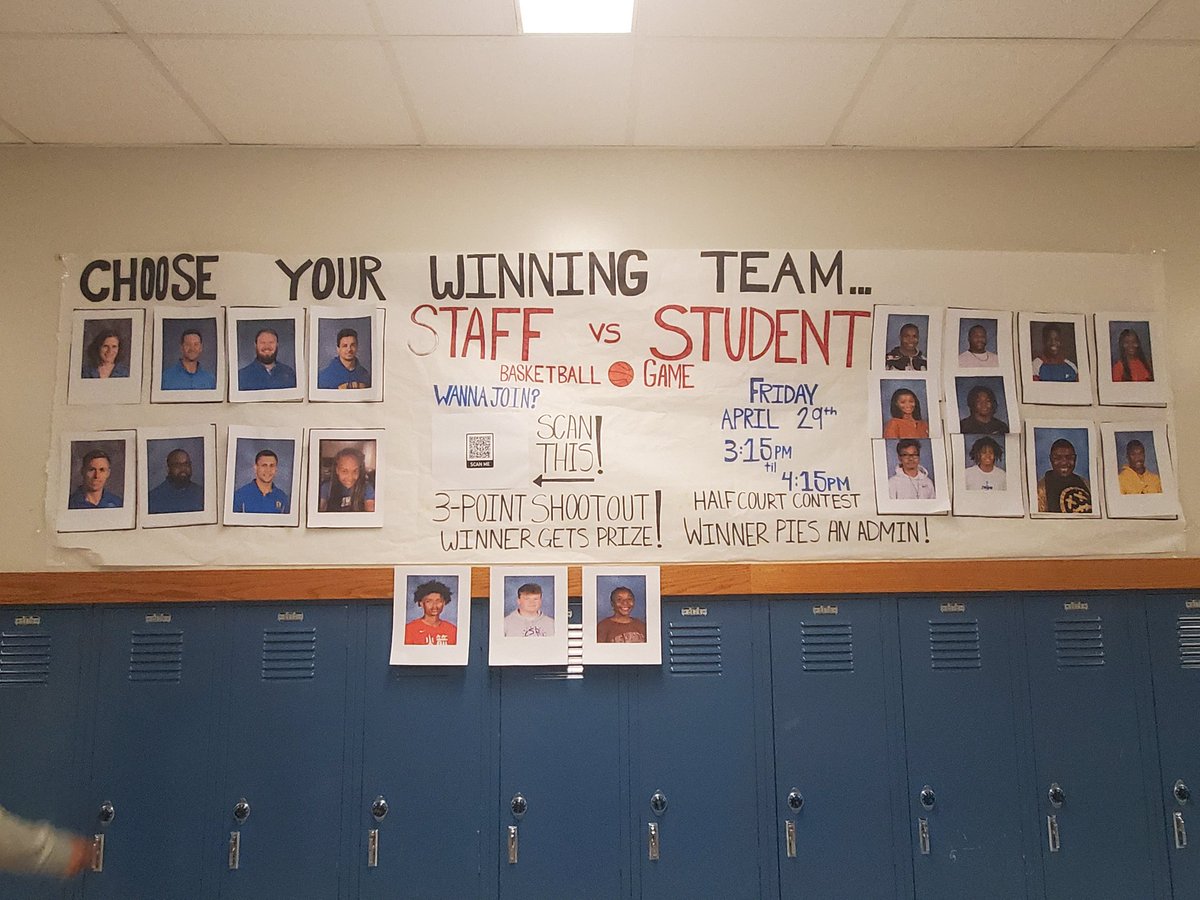 CHOOSE YOUR WINNING TEAM...
STAFF VS STUDENT
BASKETBALL GAME
WANNA JOIN?
SCAN
THIS!
SCAN ME
FRIDAY
APRIL 29th
3:15PM
til
4:15PM
3-POINT SHOOTOUT!
WINNER GETS PRIZE!
HALF COURT CONTEST
WINNER PIES AN ADMIN!